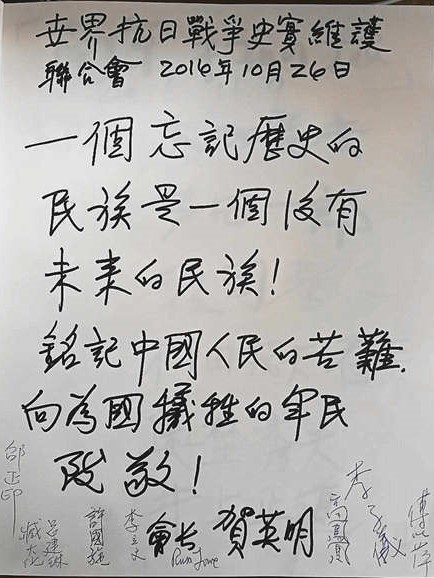 世界抗日戰爭史實維護
聯合會 2016年10月26日
一個忘記歷史的
民族是一個沒有
未來的民族!
銘記中國人民的苦難.
向為國犧牲的軍民
致敬!
會長 賀英明
邵正印
呂建琳
許國施
李立文
高鳳鳳
李子儀